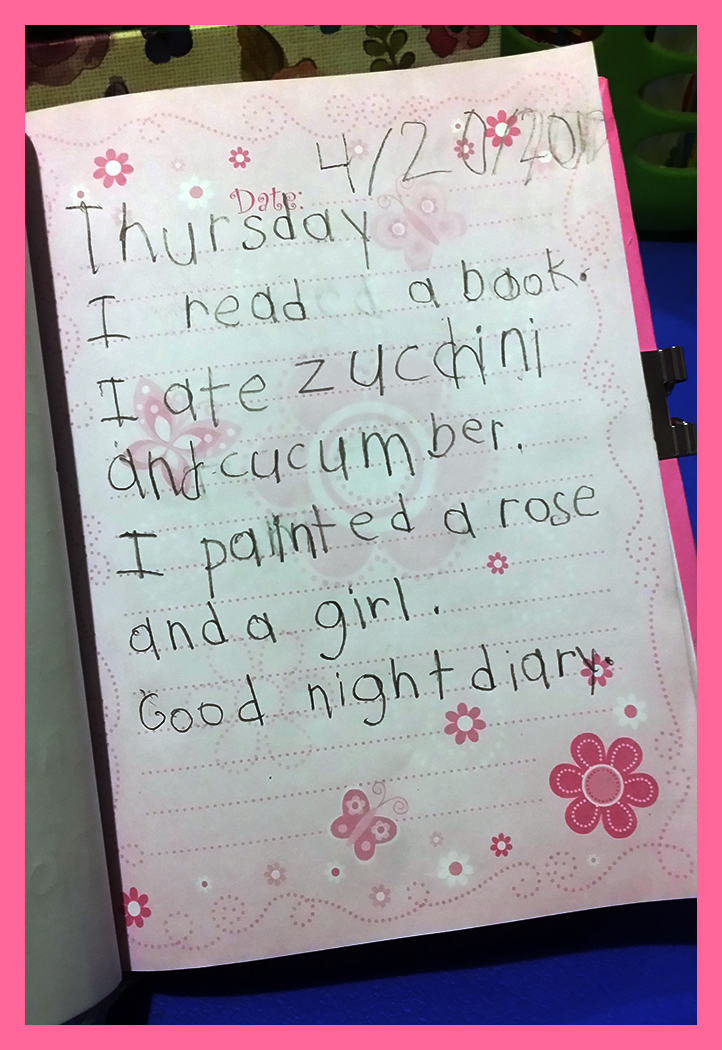 4/20/201
Date:
Thursday
I read a book.
I ate zucchini
and cucumber.
I painted a rose
and a girl.
Good night diary.